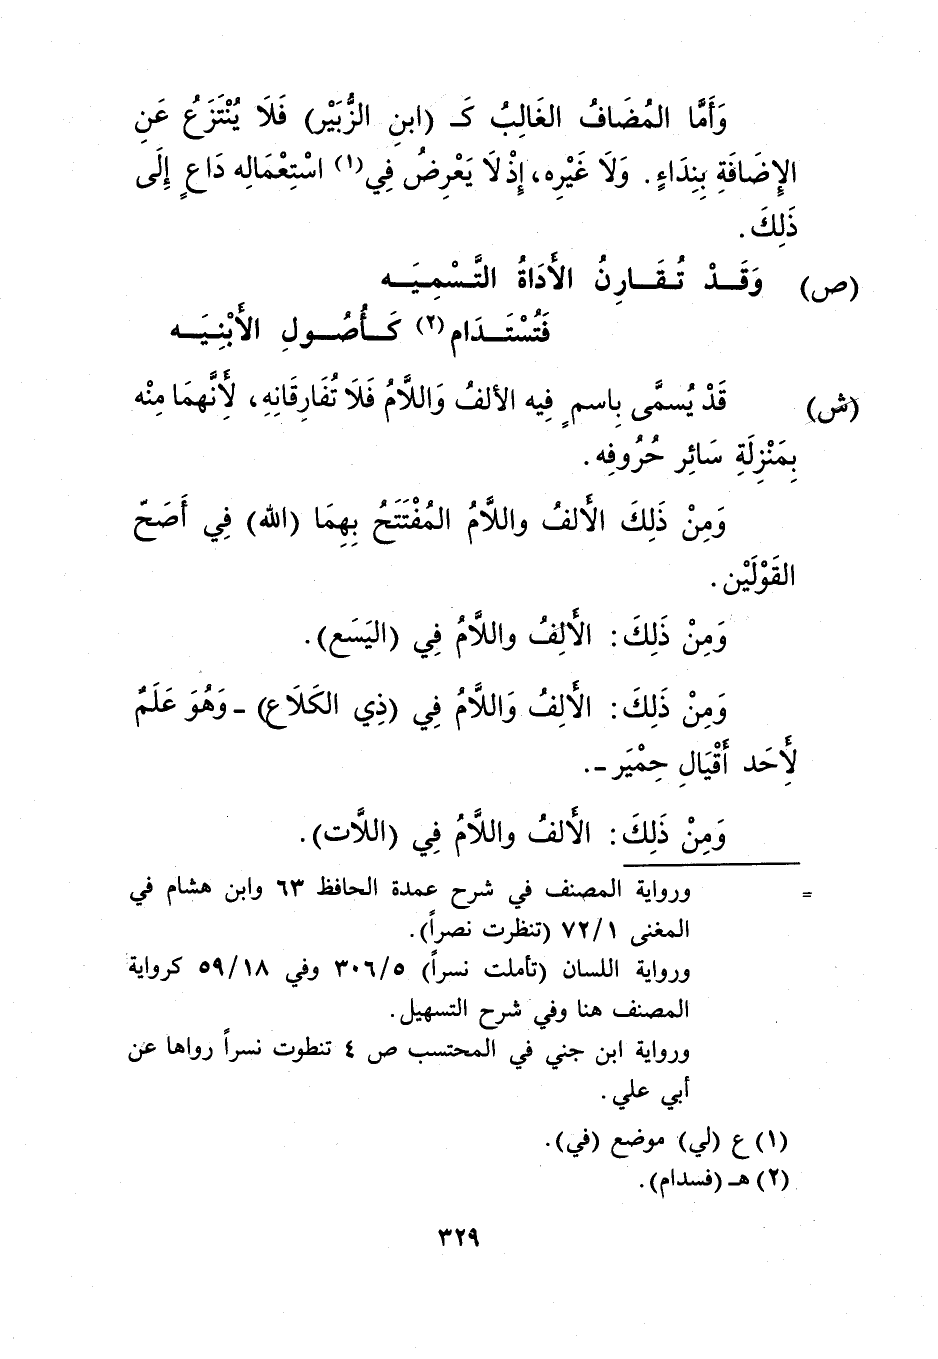 وَأَمَّا المُضَافُ الغَالِبُ كَـ (ابنِ الزُّبَيْرِ) فَلَا يُنْتَزَعُ عَنِ
الإِضَافَةِ بِنِدَاءٍ. وَلَا غَيْرِه، إِذْ لَا يَعْرِضُ فِي(١) اسْتِعْمَالِه دَاعٍ إِلَى
ذَلِكَ.
(ص) وَقَـدْ تُـقَـارِنُ الأَدَاةُ التَّسْمِيَـه
فَتُسْتَـدَام(٢) كَـأُصُـولِ الأَبْنِيَـه
(ش) قَدْ يُسمَّى بِاسمٍ فِيه الألفُ وَاللَّامُ فَلَا تُفَارِقَانِهِ، لأَنَّهمَا مِنْه
بِمَنْزِلَةِ سَائِرِ حُرُوفِه.
وَمِنْ ذَلِكَ الأَلفُ واللَّامُ المُفْتَتَحُ بِهِمَا (الله) فِي أَصَحّ
القَوْلَيْن.
وَمِنْ ذَلِكَ: الأَلِفُ واللَّامُ فِي (اليَسَع).
وَمِنْ ذَلِكَ: الأَلِفُ وَاللَّامُ فِي (ذِي الكَلَاعِ) ـ وَهُوَ عَلَمٌ
لأَحَد أَقْيَالِ حِمْيَر ـ.
وَمِنْ ذَلِكَ: الأَلفُ واللَّامُ فِي (اللَّات).
= ورواية المصنف في شرح عمدة الحافظ ٦٣ وابن هشام في
المغنى ٧٢/١ (تنظرت نصراً).
ورواية اللسان (تأملت نسراً) ٣٠٦/٥ وفي ٥٩/١٨ كرواية
المصنف هنا وفي شرح التسهيل.
ورواية ابن جني في المحتسب ص ٤ تنطوت نسراً رواها عن
أبي علي.
(١) ع (لي) موضع (في).
(٢) هـ (فسدام).
٣٢٩